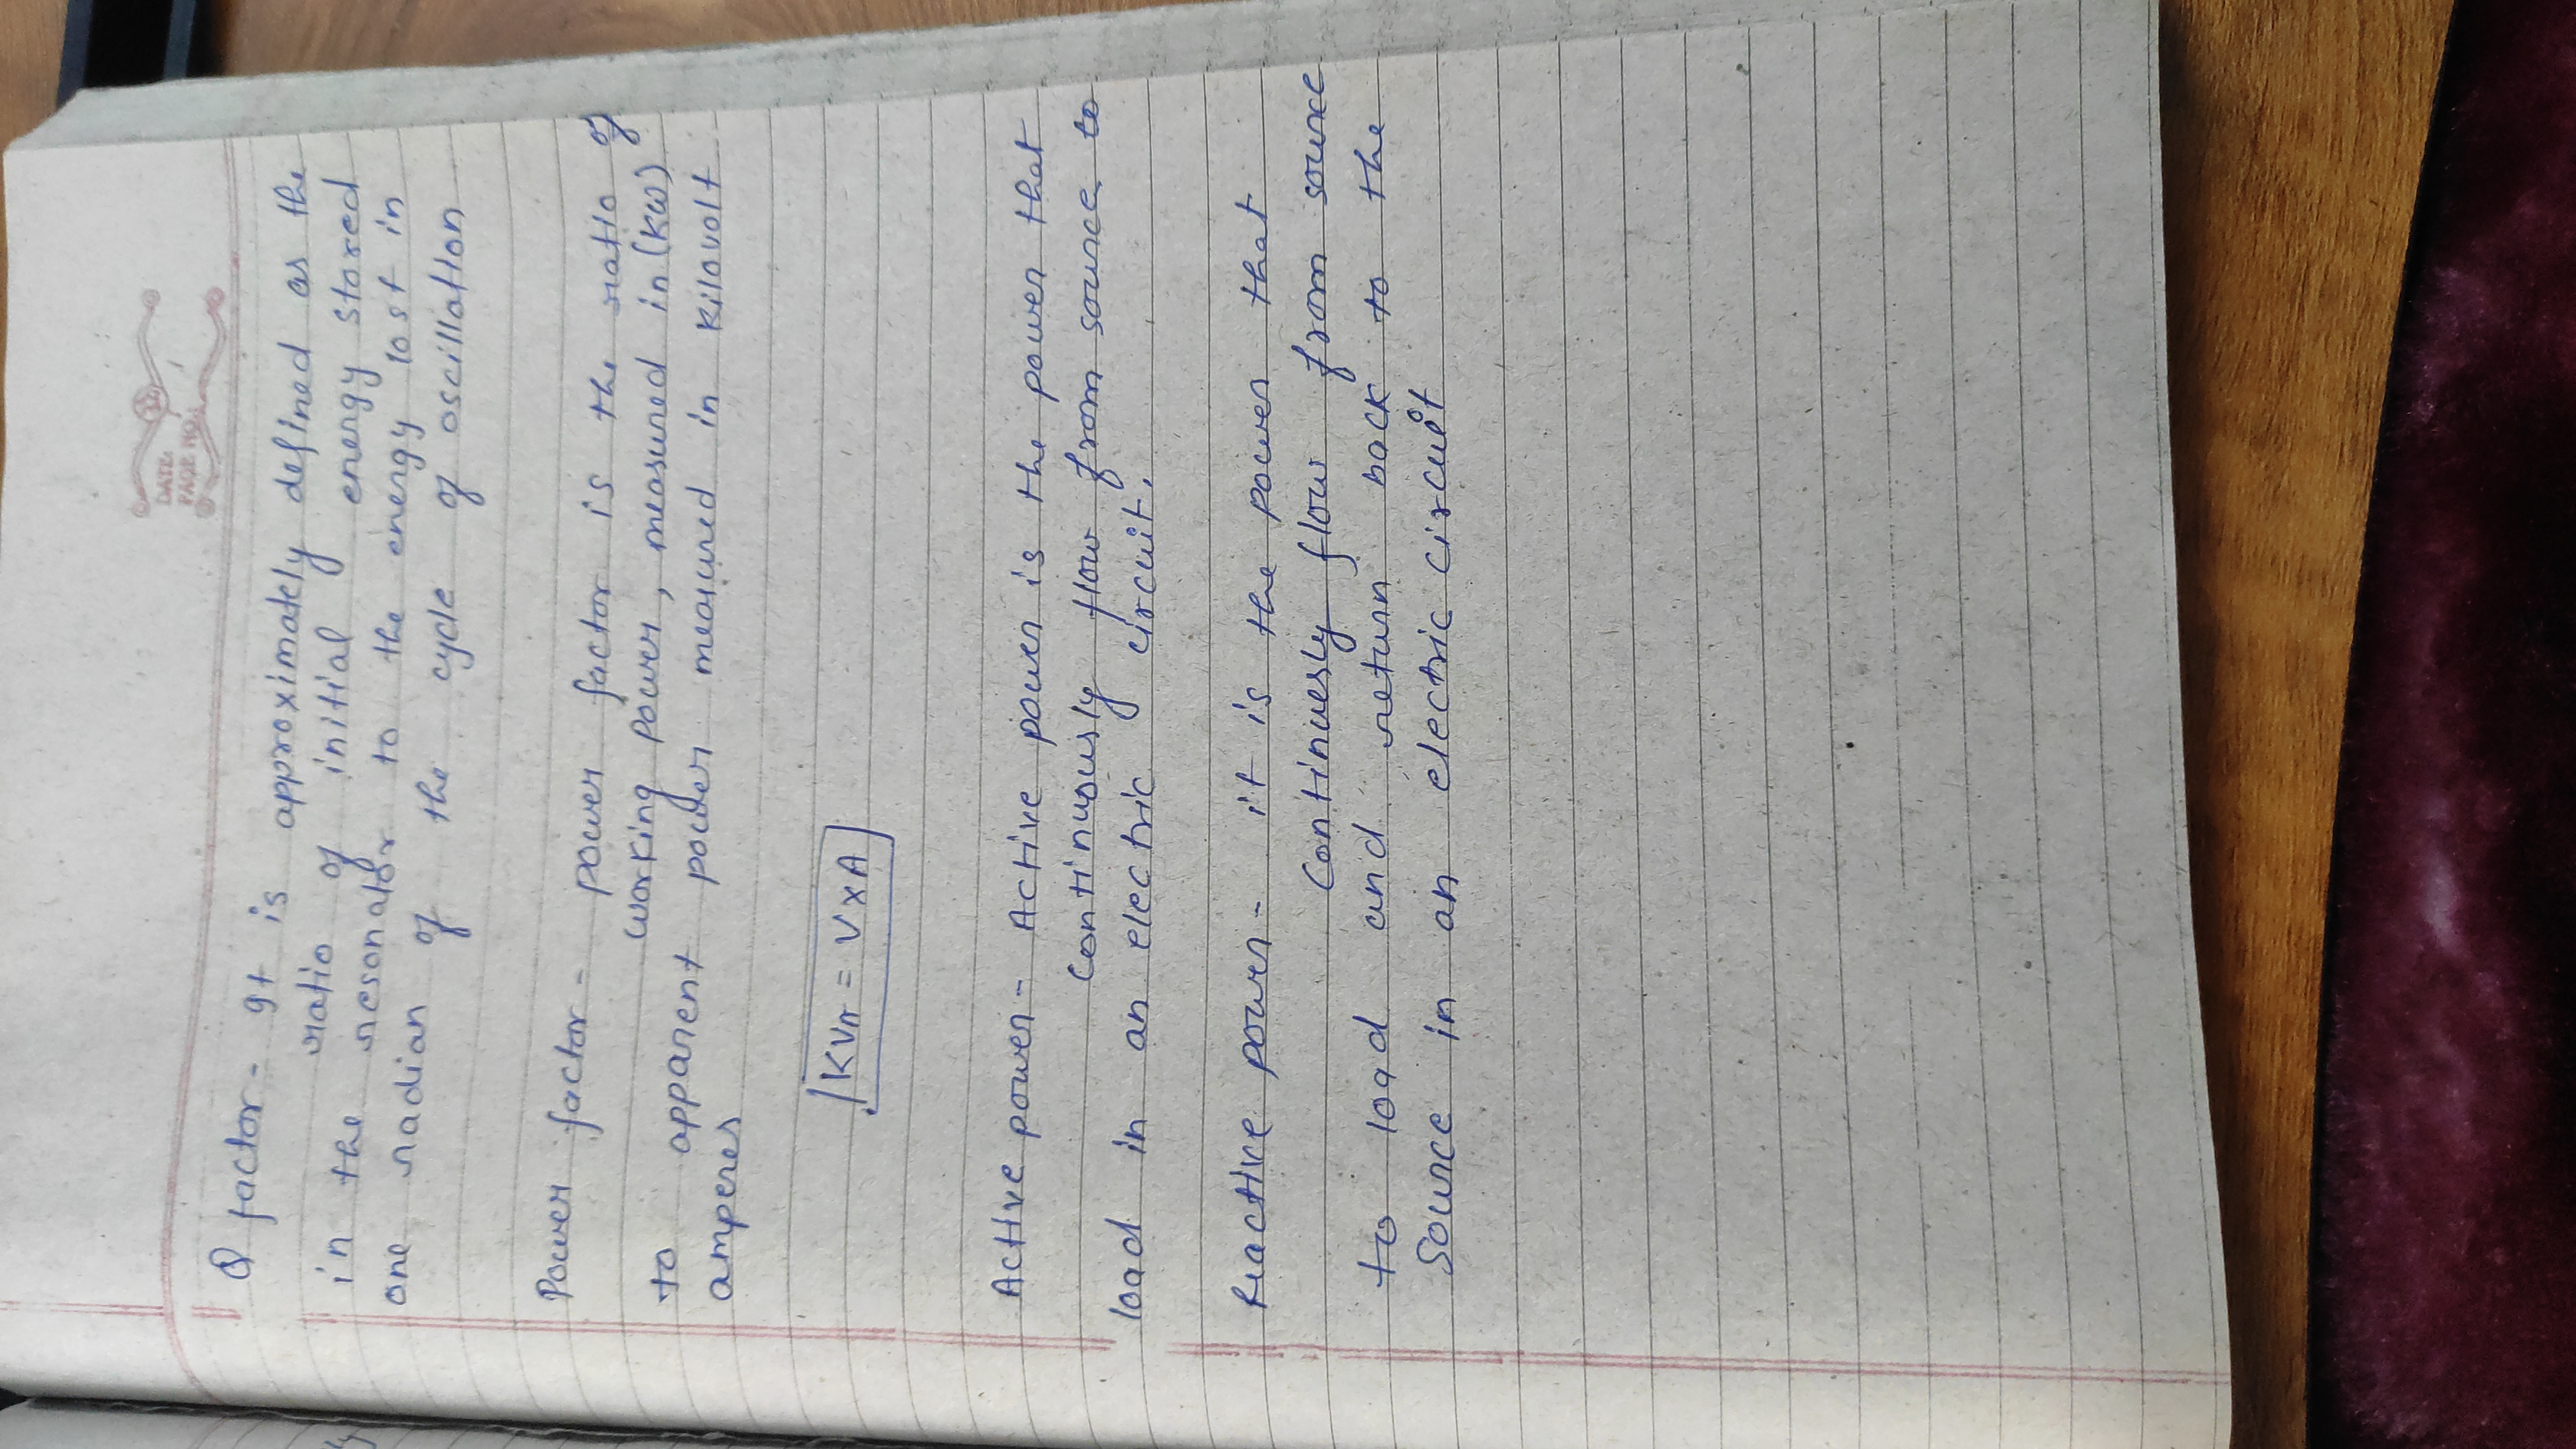 DATE:
PAGE NO.:
Q factor - It is approximately defined as the
ratio of initial energy stored
in the resonator to the energy lost in
one radian of the cycle of oscillation
Power factor - power factor is the ratio of
working power, measured in (KW)
to apparent power measured in Kilovolt
amperes
KVA = V×A
Active power - Active power is the power that
continuously flow from source to
load in an electric circuit.
Reactive power - it is the power that
continuesly flow from source
to load and return back to the
source in an electric circuit